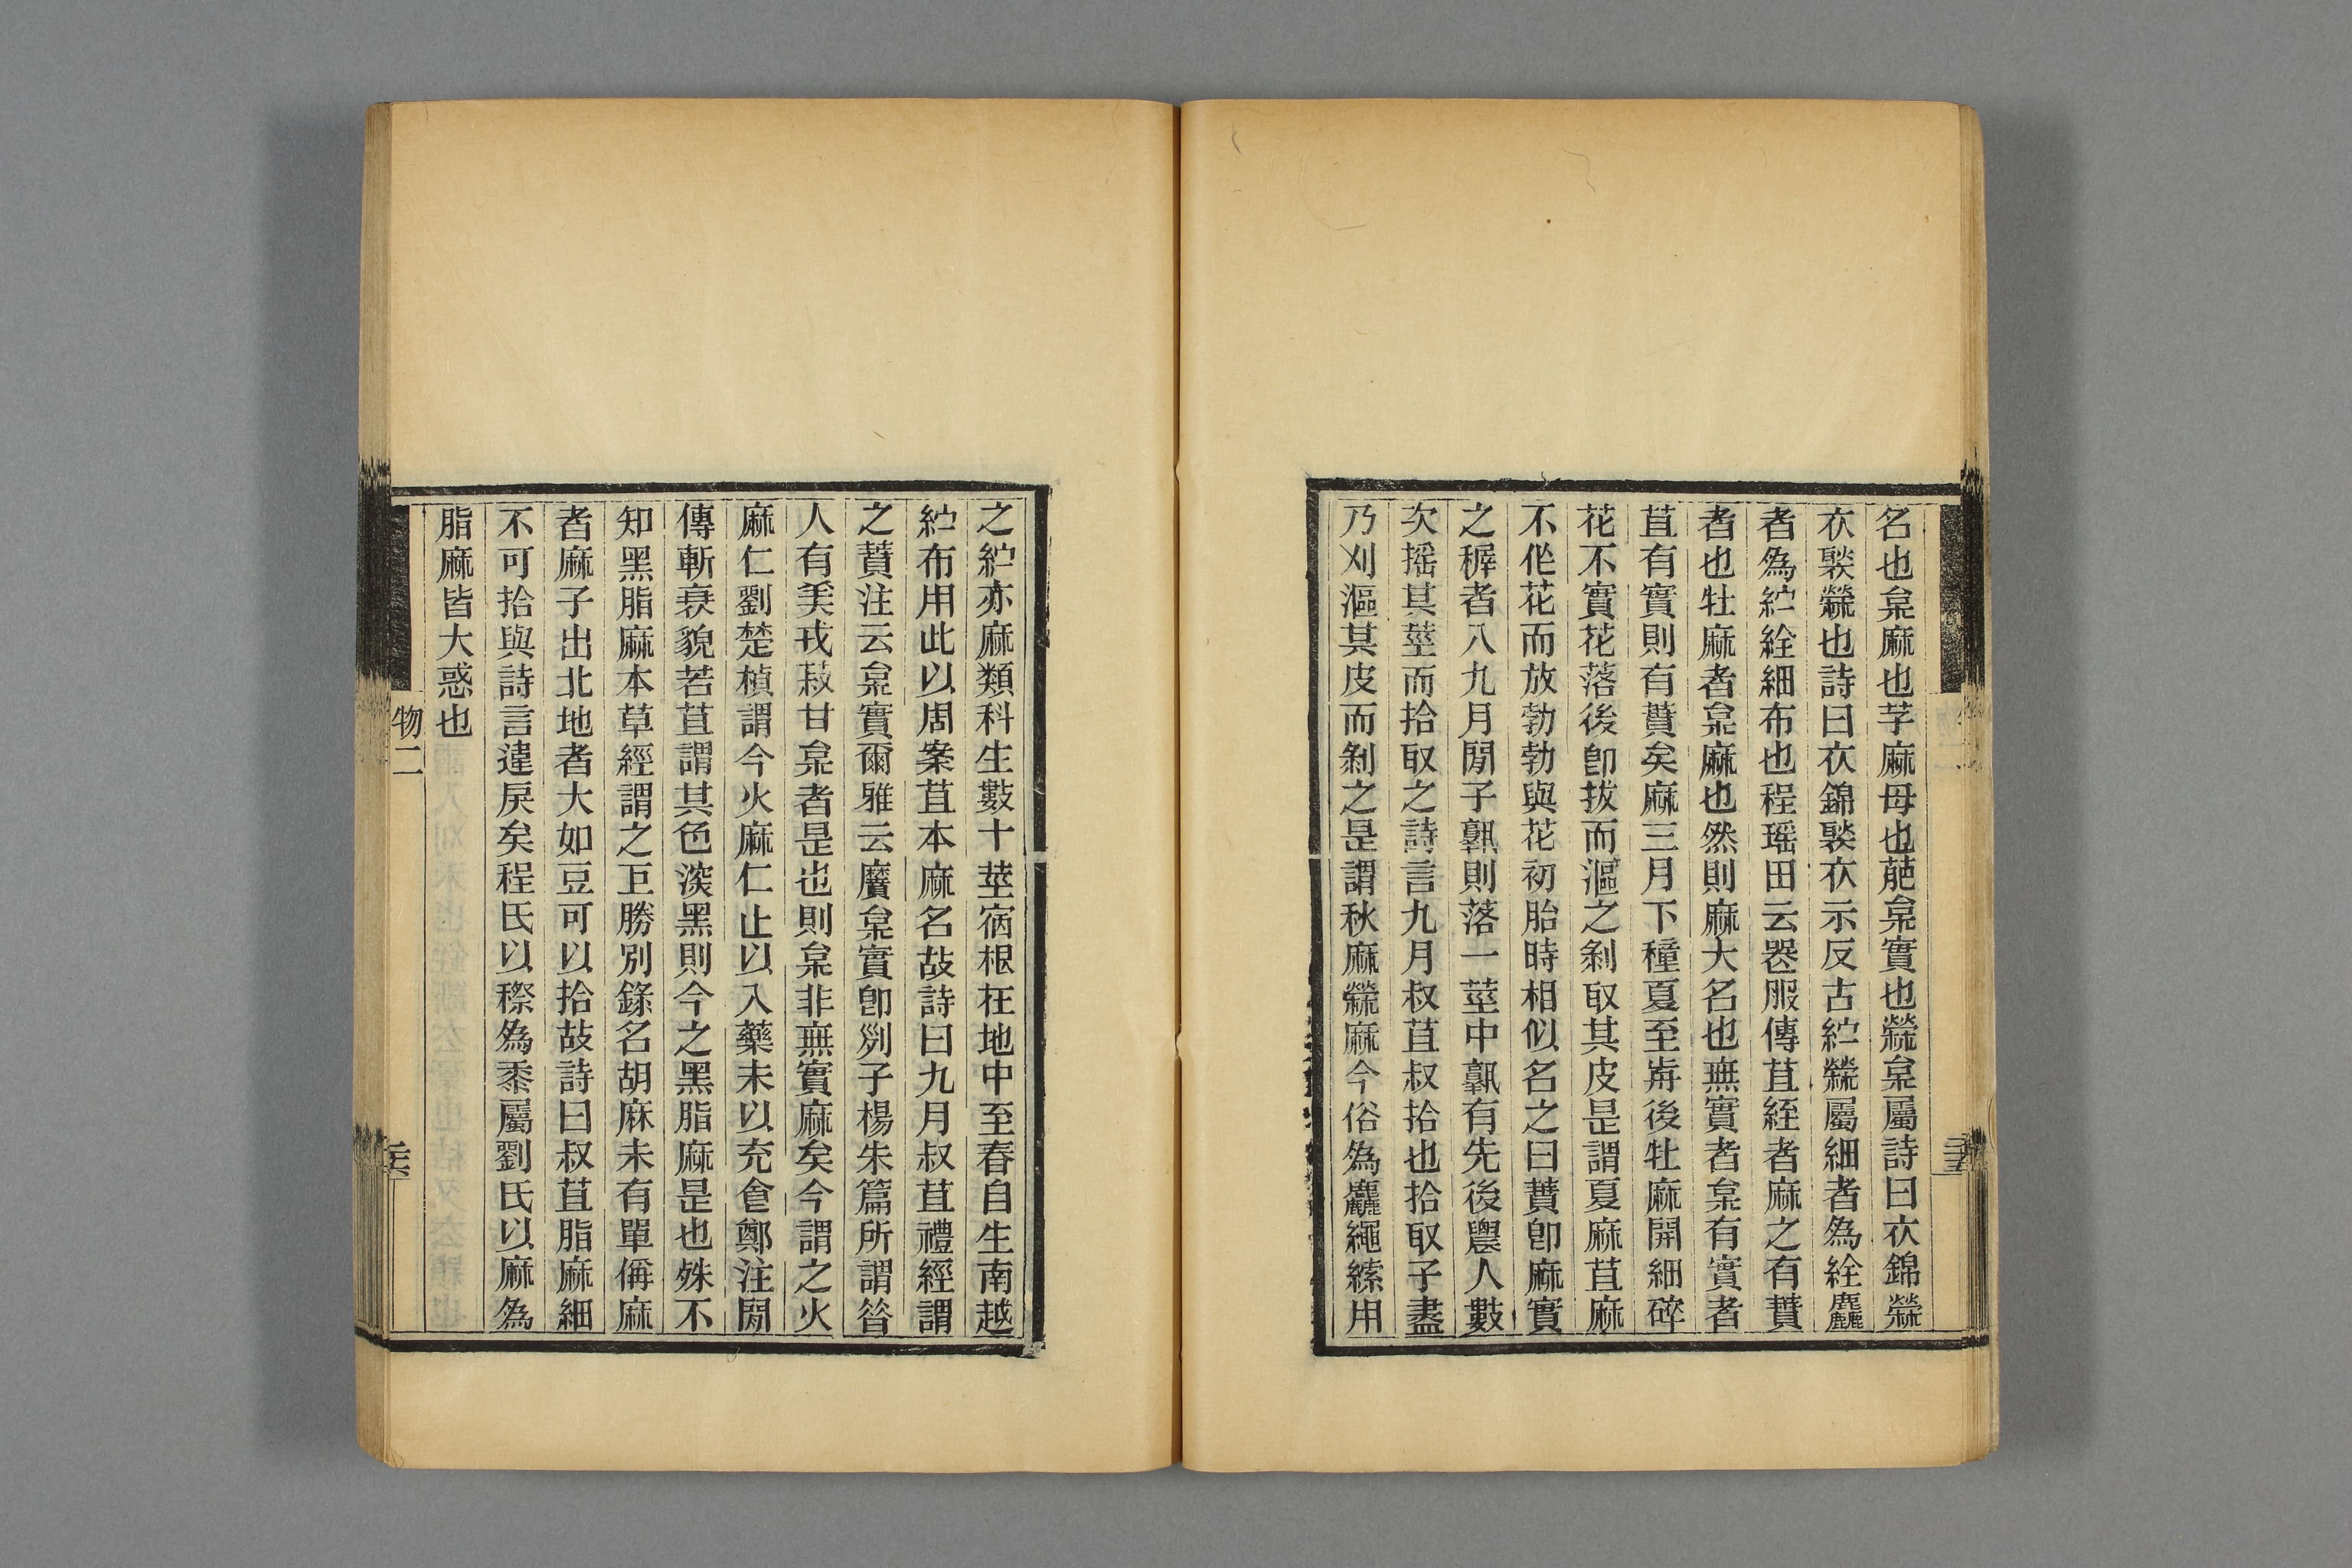 名也枲麻也芓麻母也萉枲實也檾枲屬詩曰衣錦檾
衣褧檾也詩曰衣錦褧衣示反古紵檾屬細者爲絟麤
者爲紵絟細布也程瑶田云器服傳苴絰者麻之有蕡
者也牡麻者枲麻也然則麻大名也無實者枲有實者
苴有實則有蕡矣麻三月下穜夏至歬後牡麻開細碎
花不實花落後卽拔而漚之剝取其皮是謂夏麻苴麻
不作花而放勃勃與花初胎時相似名之曰蕡卽麻實
之稺者八九月閒子孰則落一莖中孰有先後農人數
次搖其莖而拾取之詩言九月叔苴叔拾也拾取子盡
乃刈漚其皮而剝之是謂秋麻檾麻今俗爲麤繩索用
之紵亦麻類科生數十莖宿根在地中至春自生南越
紵布用此以周案苴本麻名故詩曰九月叔苴禮經謂
之蕡注云枲實爾雅云黂枲實卽列子楊朱篇所謂昝
人有美戎菽甘枲者是也則枲非無實麻矣今謂之火
麻仁劉楚楨謂今火麻仁止以入藥未以充食鄭注閒
傳斬衰貌若苴謂其色深黑則今之黑脂麻是也殊不
知黑脂麻本草經謂之巨勝別錄名胡麻未有單偁麻
者麻子出北地者大如豆可以拾故詩曰叔苴脂麻細
不可拾與詩言違戾矣程氏以穄爲黍屬劉氏以麻爲
脂麻皆大惑也
物二